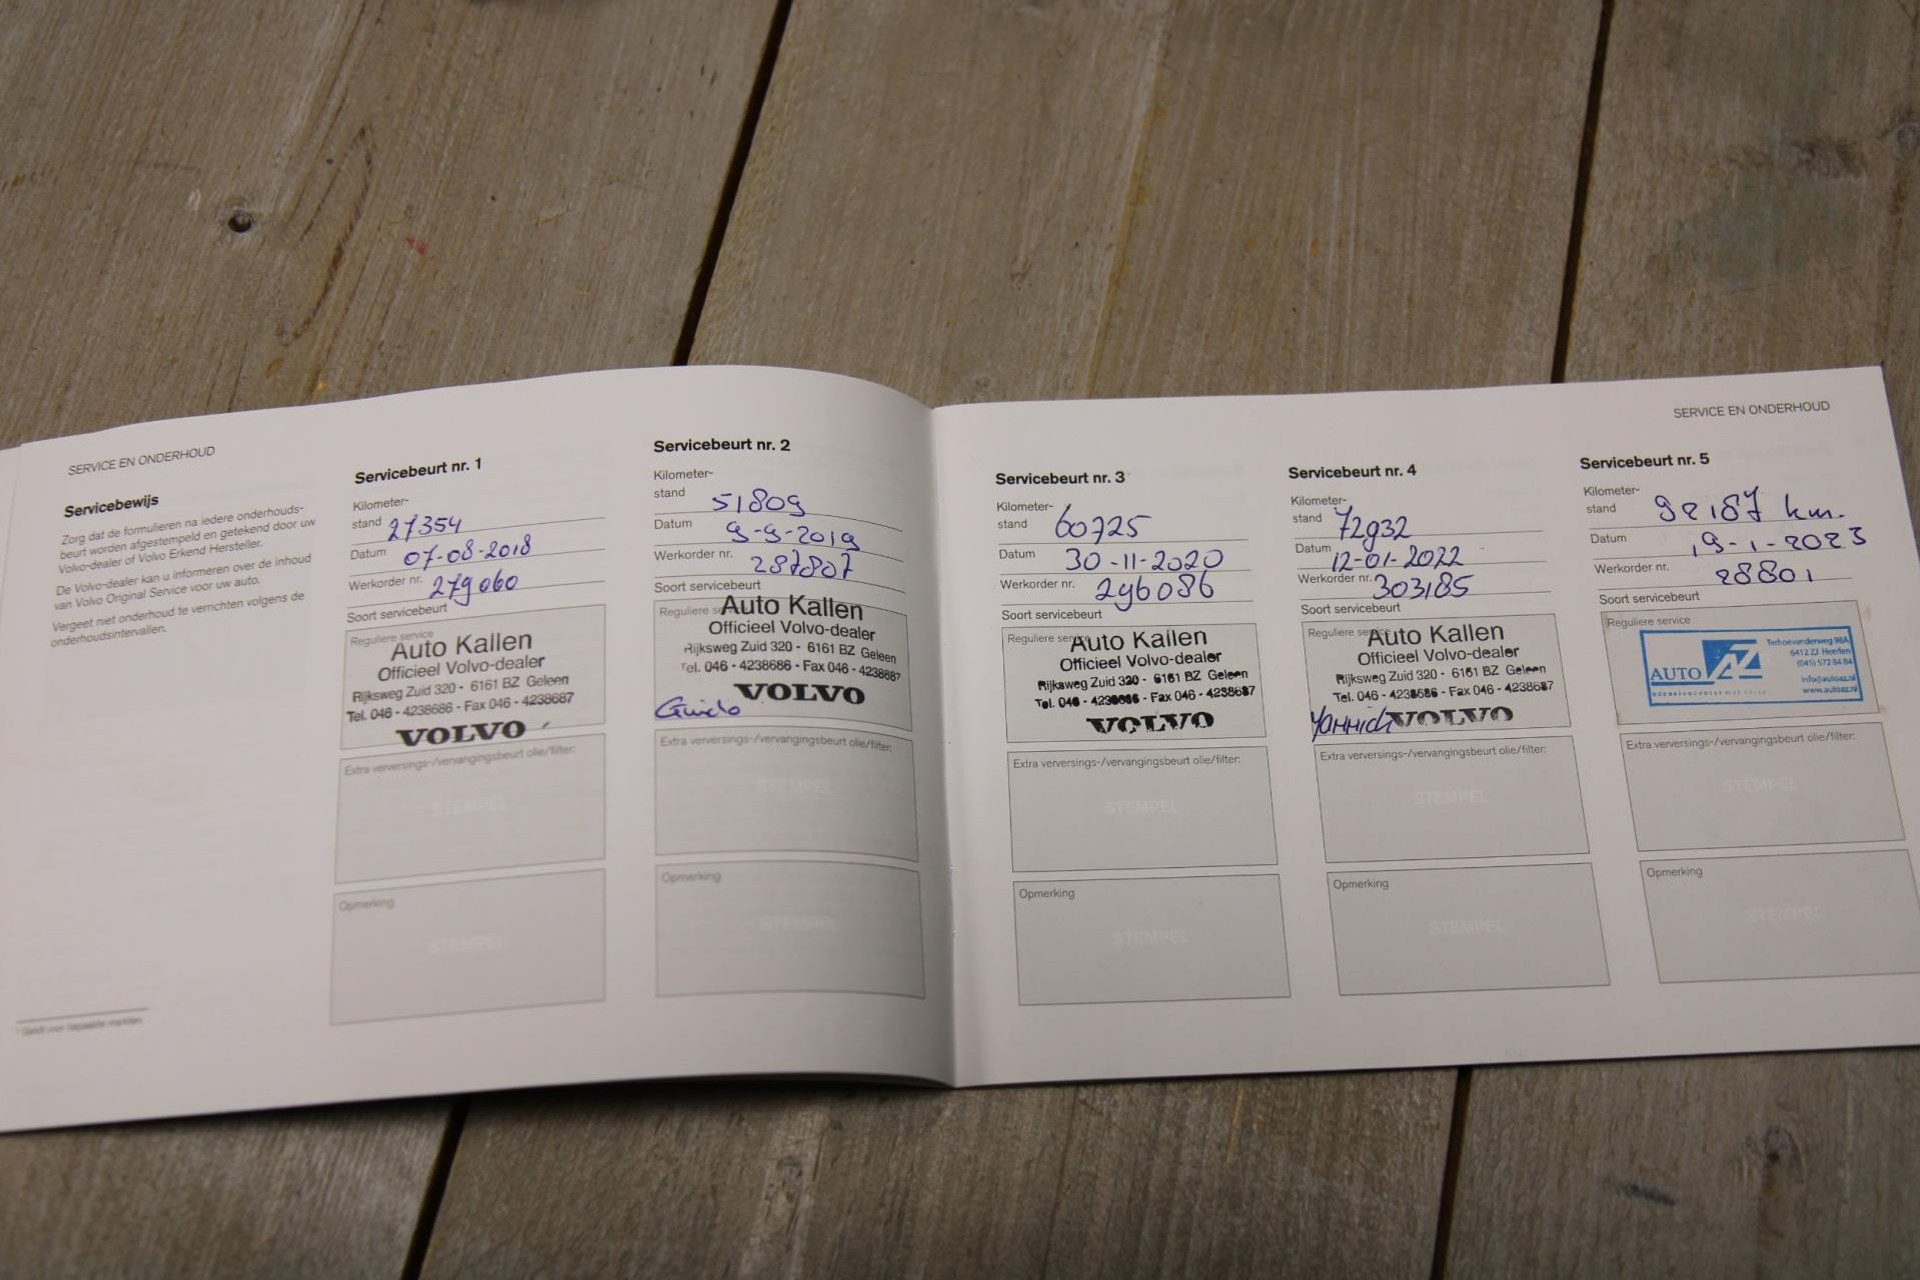 SERVICE EN ONDERHOUD
Servicebewijs
Zorg dat de formulieren na iedere onderhouds-
beurt worden afgestempeld en getekend door uw
Volvo-dealer of Volvo Erkend Hersteller.
De Volvo-dealer kan u informeren over de inhoud
van Volvo Original Service voor uw auto.
Vergeet niet onderhoud te verrichten volgens de
onderhoudsintervallen.
Servicebeurt nr. 1
Kilometer-
stand 27354
Datum 07-08-2018
Werkorder nr. 279060
Soort servicebeurt
Reguliere service
Auto Kallen
Officieel Volvo-dealer
Rijksweg Zuid 320 - 6161 BZ Geleen
Tel. 046 - 4238686 - Fax 046 - 4238687
VOLVO
Extra verversings-/vervangingsbeurt olie/filter:
STEMPEL
Opmerking
STEMPEL
Servicebeurt nr. 2
Kilometer-
stand 51809
Datum 9-9-2019
Werkorder nr. 287807
Soort servicebeurt
Reguliere
Auto Kallen
Officieel Volvo-dealer
Rijksweg Zuid 320 - 6161 BZ Geleen
Tel. 046 - 4238686 - Fax 046 - 4238687
Guido VOLVO
Extra verversings-/vervangingsbeurt olie/filter:
STEMPEL
Opmerking
STEMPEL
SERVICE EN ONDERHOUD
Servicebeurt nr. 3
Kilometer-
stand 60725
Datum 30-11-2020
Werkorder nr. 296086
Soort servicebeurt
Reguliere service
Auto Kallen
Officieel Volvo-dealer
Rijksweg Zuid 320 - 6161 BZ Geleen
Tel. 046 - 4238686 - Fax 046 - 4238687
VOLVO
Extra verversings-/vervangingsbeurt olie/filter:
STEMPEL
Opmerking
STEMPEL
Servicebeurt nr. 4
Kilometer-
stand 72932
Datum 12-01-2022
Werkorder nr. 303185
Soort servicebeurt
Reguliere service
Auto Kallen
Officieel Volvo-dealer
Rijksweg Zuid 320 - 6161 BZ Geleen
Tel. 046 - 4238686 - Fax 046 - 4238687
Yannick VOLVO
Extra verversings-/vervangingsbeurt olie/filter:
STEMPEL
Opmerking
STEMPEL
Servicebeurt nr. 5
Kilometer-
stand 92187 km.
Datum 19-1-2023
Werkorder nr. 28801
Soort servicebeurt
Reguliere service
AUTO AZ
Terhoevenderweg 98A
6412 ZJ Heerlen
(045) 572 84 84
info@autoaz.nl
www.autoaz.nl
Extra verversings-/vervangingsbeurt olie/filter:
STEMPEL
Opmerking
STEMPEL